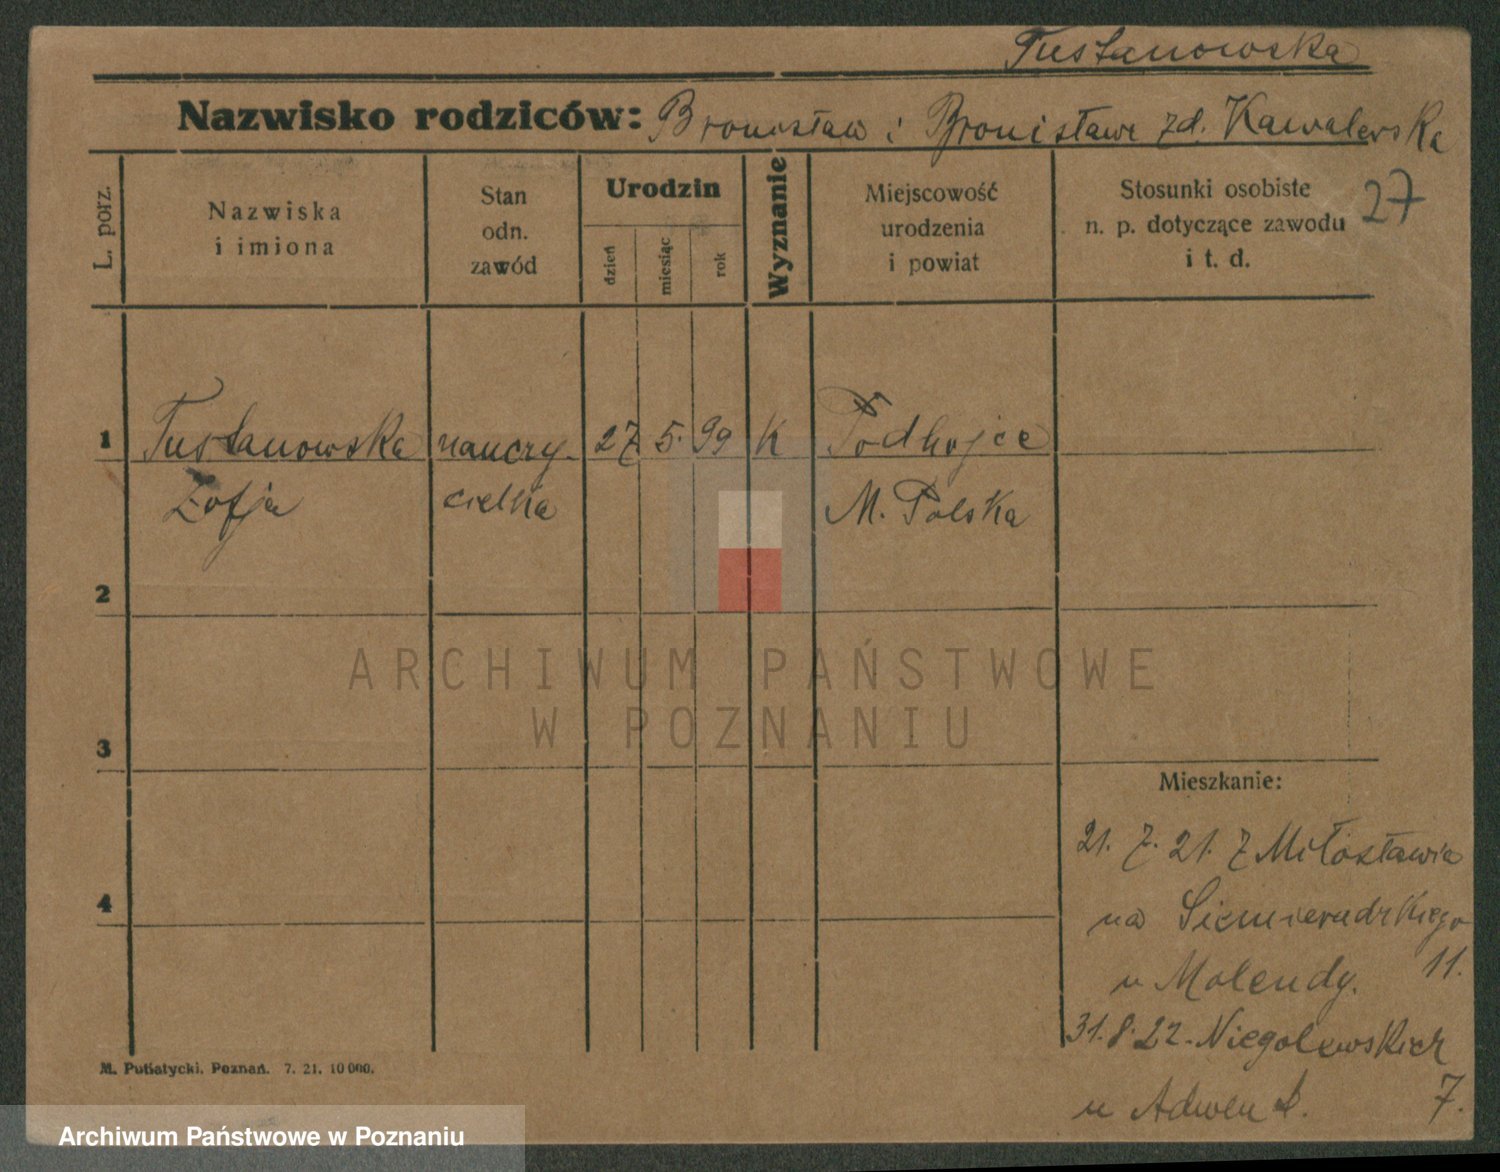 Tustanowska
Nazwisko rodziców: Bronisław i Bronisława zd. Kawalerska
L. porz.
Nazwiska
i imiona
Stan
odn.
zawód
Urodzin
dzień
miesiąc
rok
Wyznanie
Miejscowość
urodzenia
i powiat
Stosunki osobiste
n. p. dotyczące zawodu
i t. d.
27
1 Tustanowska nauczy- 27 5. 99 K Podhajce
Zofja cielka M. Polska
2
3
4
ARCHIWUM PAŃSTWOWE
W POZNANIU
Mieszkanie:
21. 7. 21. z Miłosławia
na Siemieradzkiego
11.
u Molendy.
31. 8. 22. Niegolewskich
u 7.
M. Putiatycki. Poznań. 7. 21. 10 000.
Archiwum Państwowe w Poznaniu